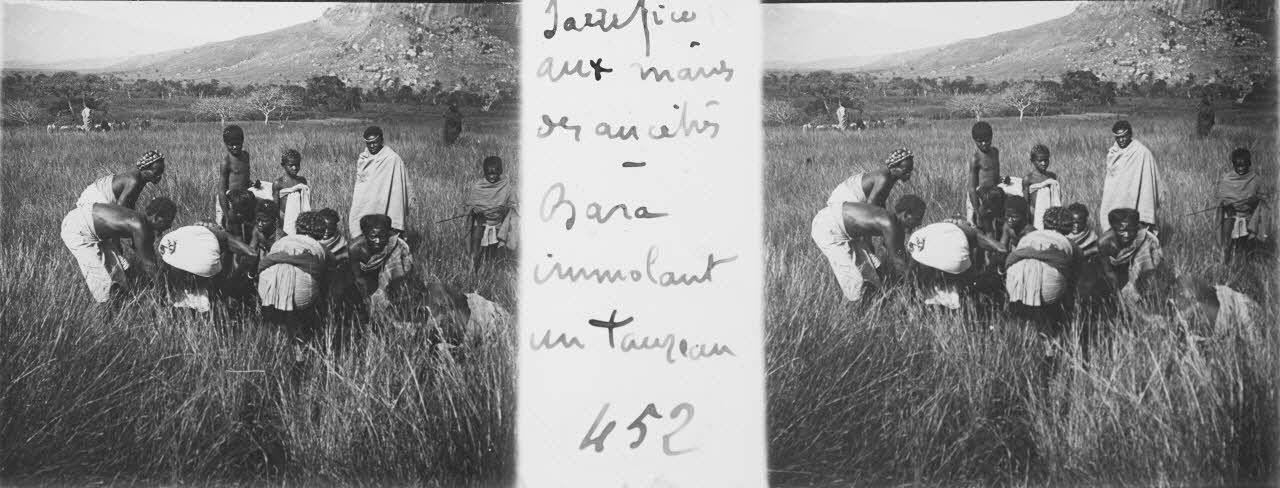 Sacrifice
aux mânes
des ancêtres
-
Bara
immolant
un taureau
452